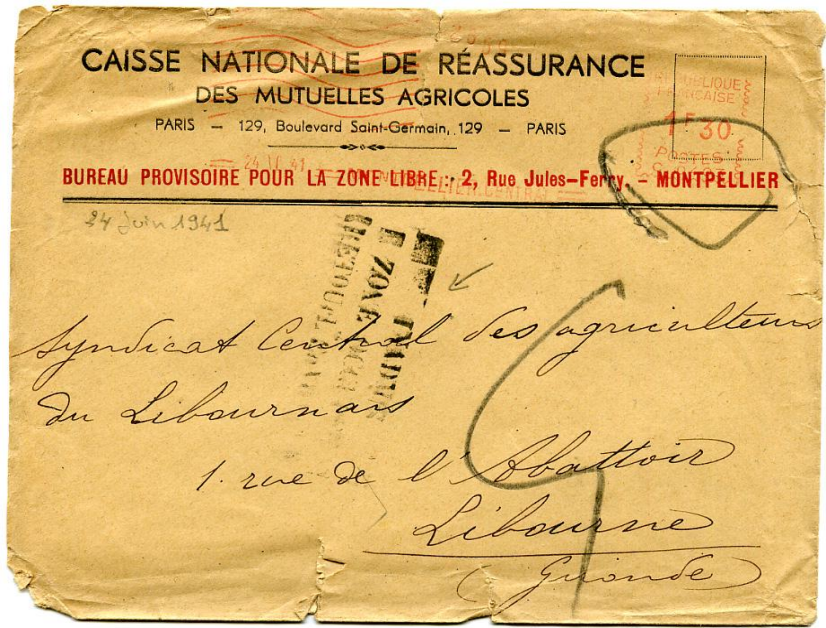 CAISSE NATIONALE DE RÉASSURANCE
DES MUTUELLES AGRICOLES
PARIS — 129, Boulevard Saint-Germain, 129 — PARIS
RÉPUBLIQUE
FRANÇAISE
1F30
POSTES
BUREAU PROVISOIRE POUR LA ZONE LIBRE : 2, Rue Jules-Ferry, - MONTPELLIER
24 juin 1941
ZONE
Syndicat Central des agriculteurs
du Libournais
1. rue de l'Abattoir
Libourne
(Gironde)